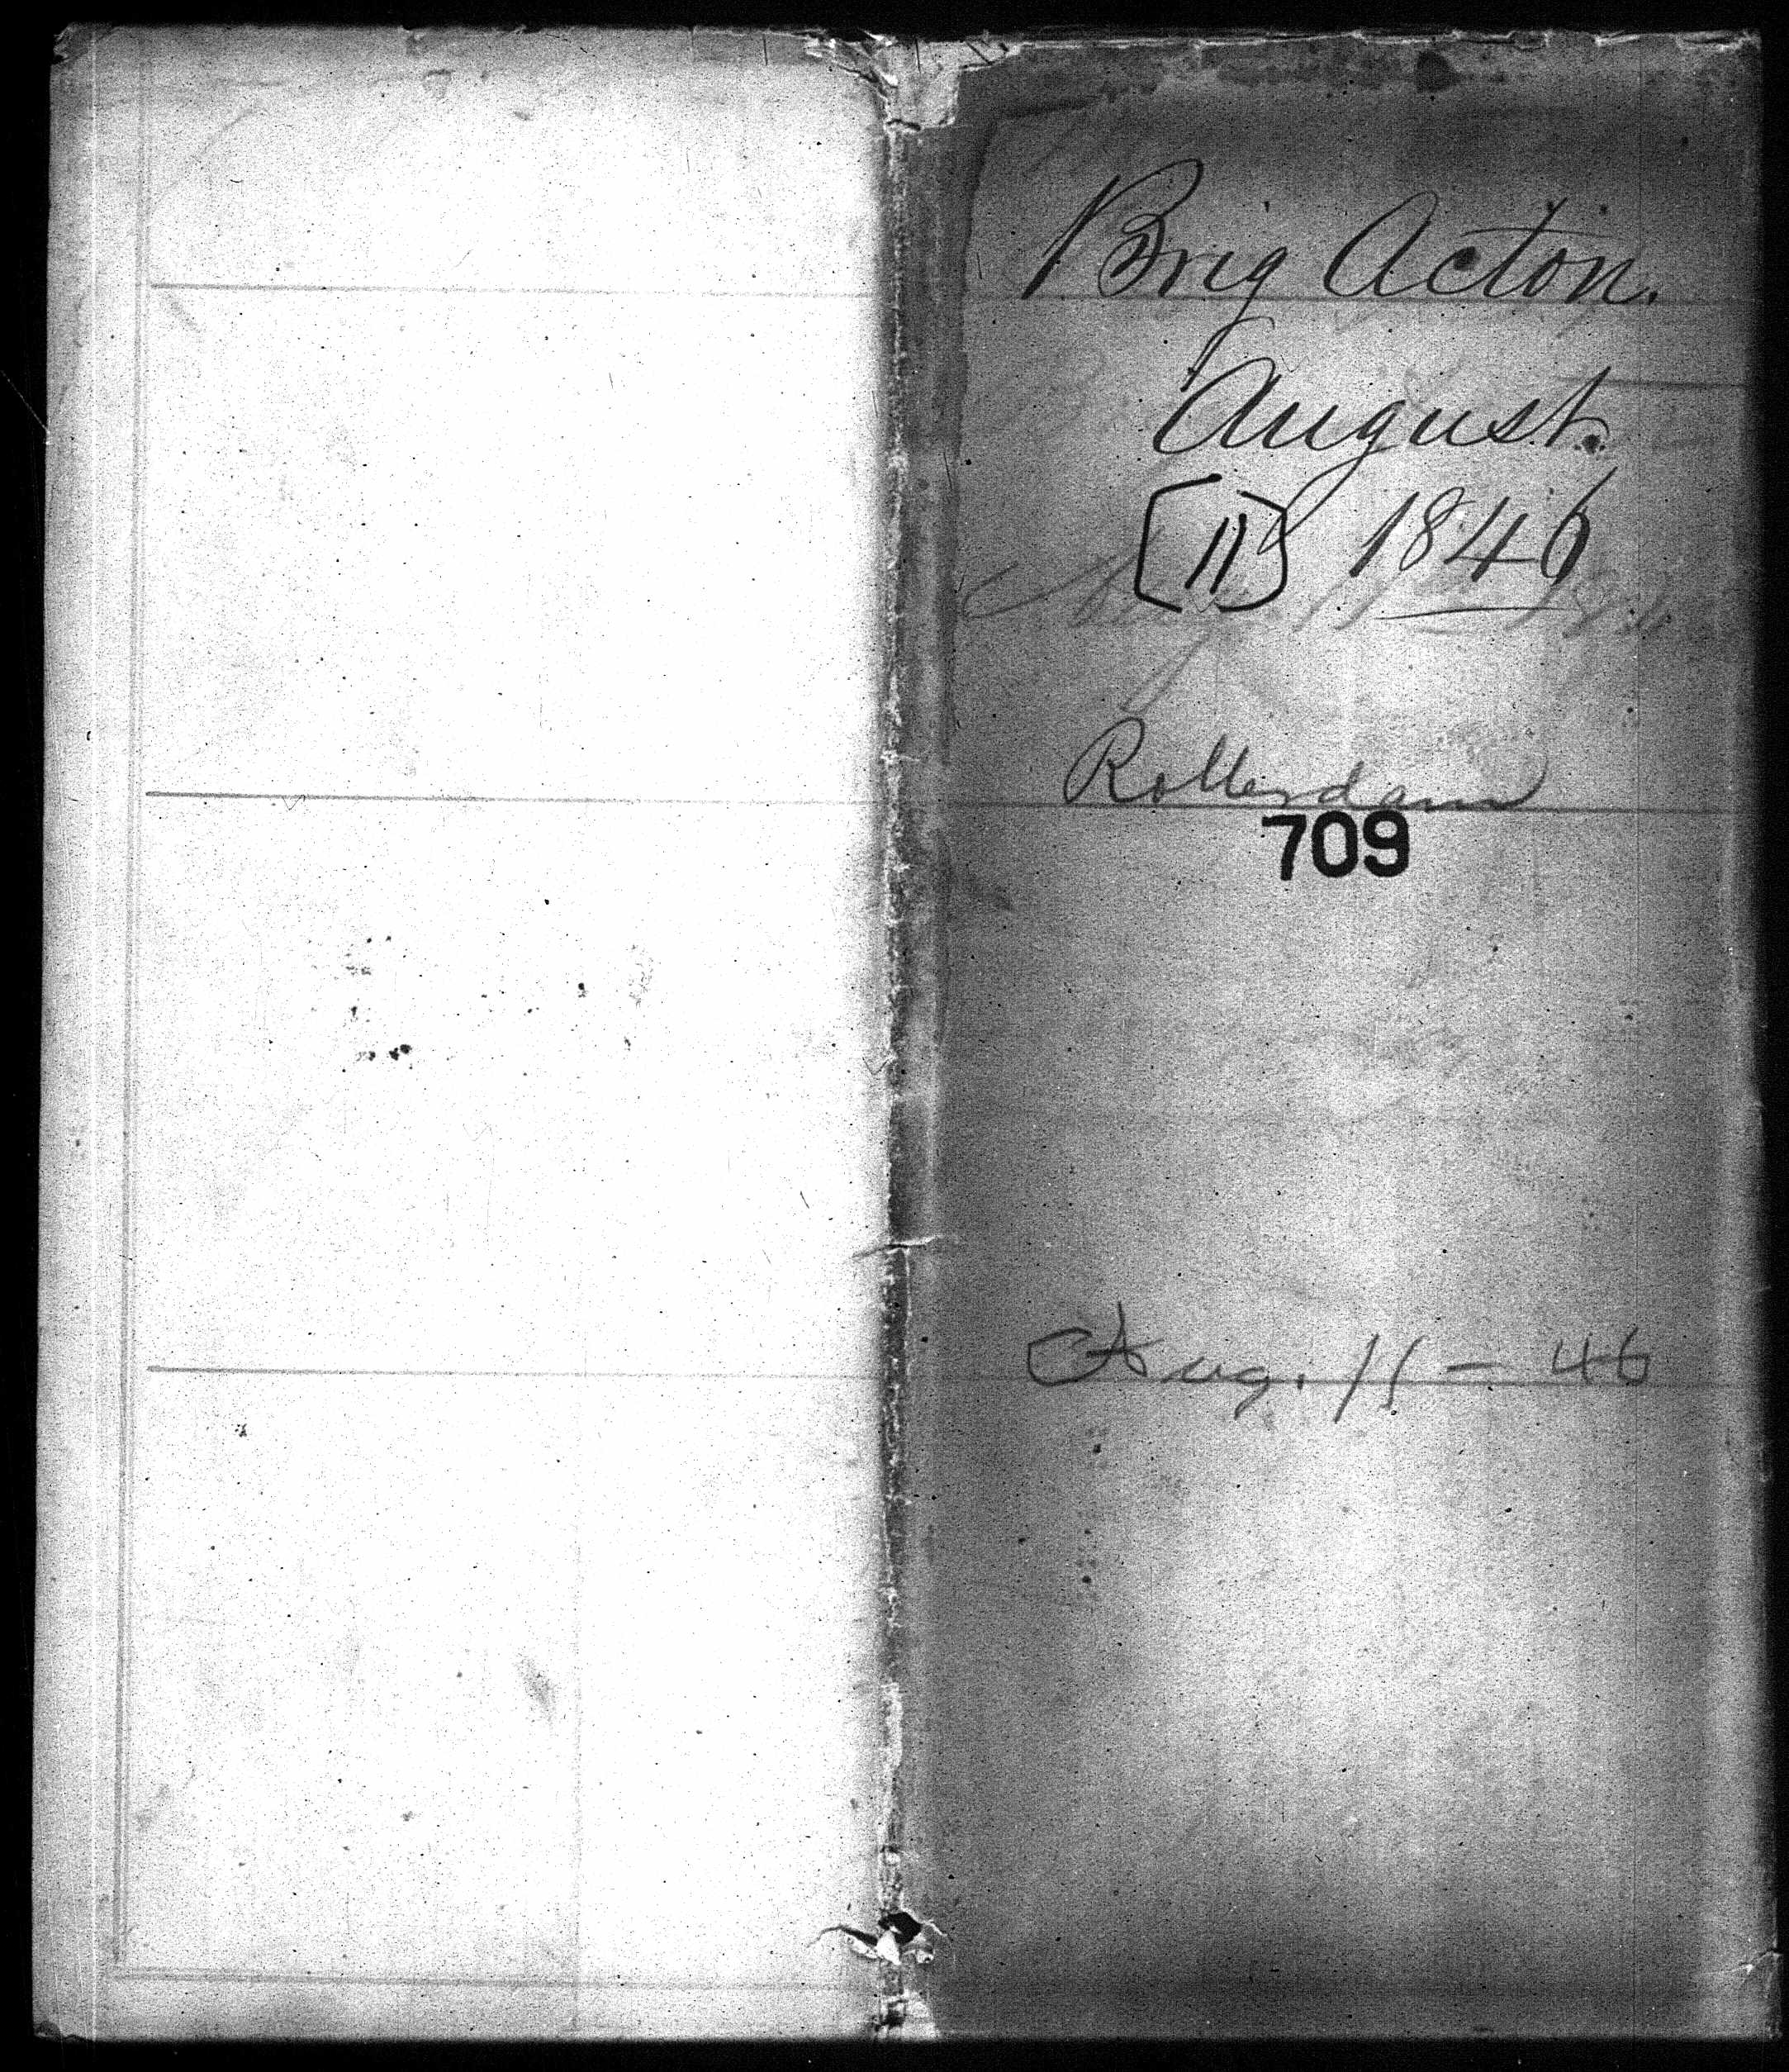 Brig Acton.
August.
[11] 1846
Rotterdam
709
Aug. 11 - 46